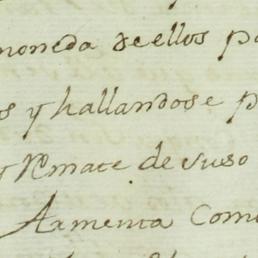 moneda de ellos po
s y hallandose p
y Remate de suso
Armenta Com